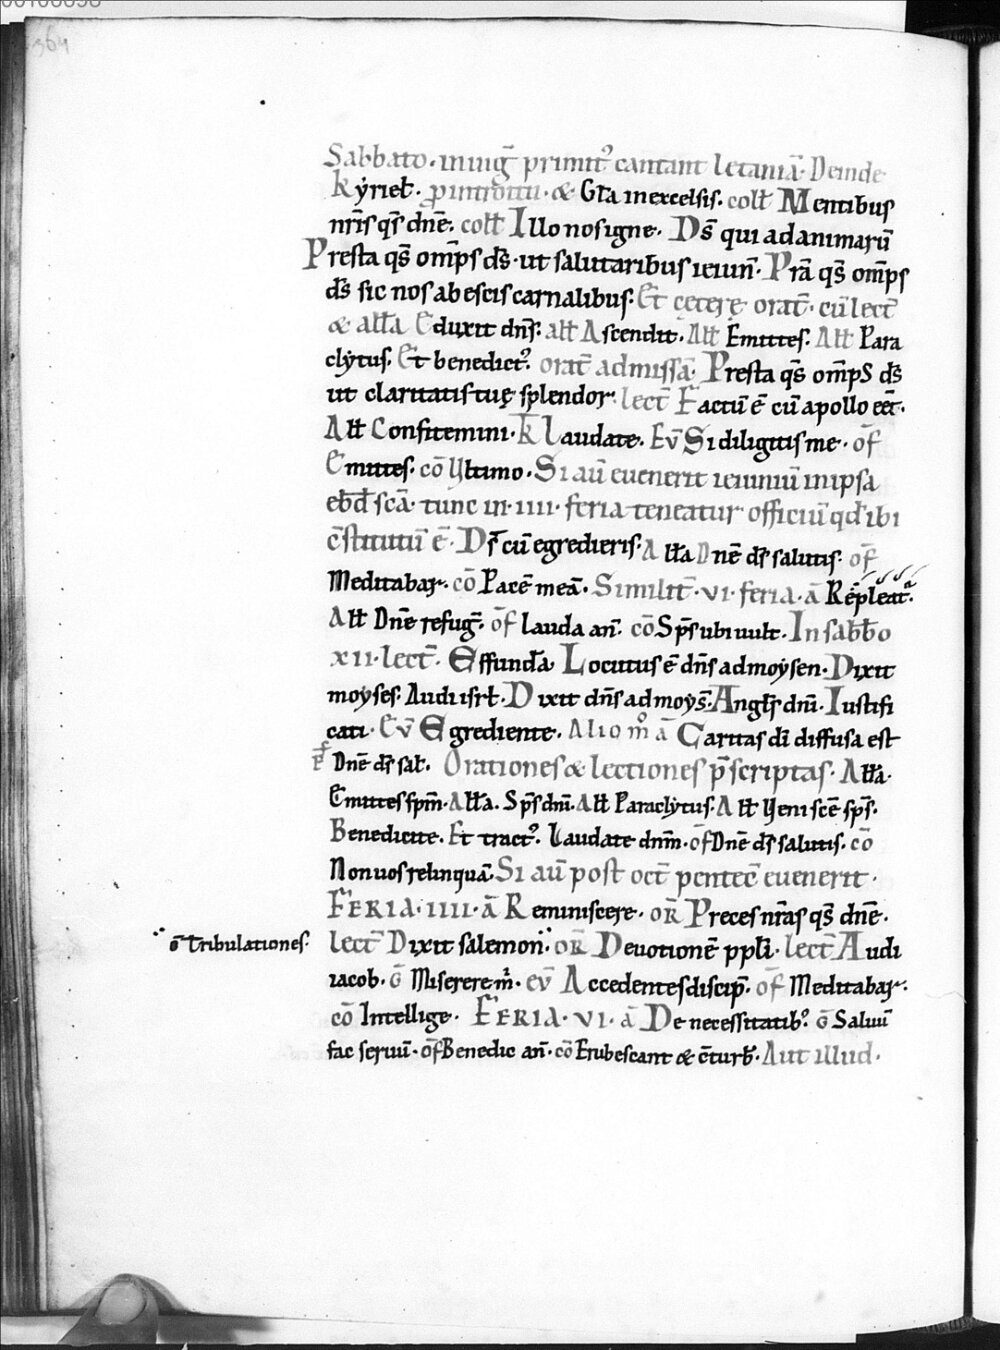 364
Sabbato. in uig̅ primit᷒ cantant letaniā. Deinde
kẏriel̅. ꝓ introitu. & Gl̅a in excelsis. coll̅ Mentibus
nr̅is qs̅ dn̅e. coll̅ Illo nos igne. Ds̅ qui ad animarū
Presta qs̅ om̅ps ds̅. ut salutaribus ieiun̅. Prā qs̅ om̅ps
ds̅ sic nos ab escis carnalibus. Et cętere orat̅. cū lect̅
& all̅a Eduxit dn̅s. all̅ Ascendit. All̅ Emittes. All̅ Para
clẏtus. Et benedict᷒. orat̅ ad missā. Presta qs̅ om̅ps ds̅
ut claritatis tuę splendor. lect̅ Factū ē cū apollo eet̅.
All̅ Confitemini. k̅ Laudate. Ev̅ Si diligitis me. of̅
Emittes. cō Ultimo. Si aū euenerit ieiuniū in ipsa
ebd̅ scā. tunc in. iiii. feria teneatur officiū qd̅ ibi
c̅stitutū ē. Ds̅ cū egredieris. All̅a Dn̅e ds̅ salutis. of̅
Meditabar. cō Pacē meā. Similit̅. vi. feria. ā Repleat᷒.
All̅ Dn̅e refug̅. of̅ Lauda an̅. cō Sps̅ ubi uult. In sabb̅o
xii. lect̅. Effundā. Locutus ē dn̅s ad moysen. Dixit
moyses. Audi isrl̅. Dixit dn̅s ad moys̅. Angl̅s dn̅i. Iustifi
cati. Ev̅ Egrediente. Alio m̊ ā Caritas di̅ diffusa est
Dn̅e ds̅ sal̅. Orationes & lectiones p̅scriptas. All̅a.
Emittes spm̅. All̅a. Sps̅ dn̅i. All̅ Paraclẏtus. All̅ Veni sc̅e sps̅.
Benedicite. Et tract᷒. Laudate dnm̅. of̅ Dn̅e ds̅ salutis. cō
Non uos relinquā. Si aū post oct̅ pentec̅ euenerit.
FERIA. IIII. ā Reminiscere. oR̅ Preces nr̅as qs̅ dn̅e.
ḡ Tribulationes.
lect̅ Dixit salemon. oR̅ Deuotionē ppl̅i. lect̅ Audi
iacob. ḡ Miserere m̅. ev̅ Accedentes discip̅. of̅ Meditabar.
cō Intellige. FERIA. VI. ā De necessitatib᷒. ḡ Saluū
fac seruū. of̅ Benedic an̅. cō Erubescant & c̅turb̅. Aut illud.